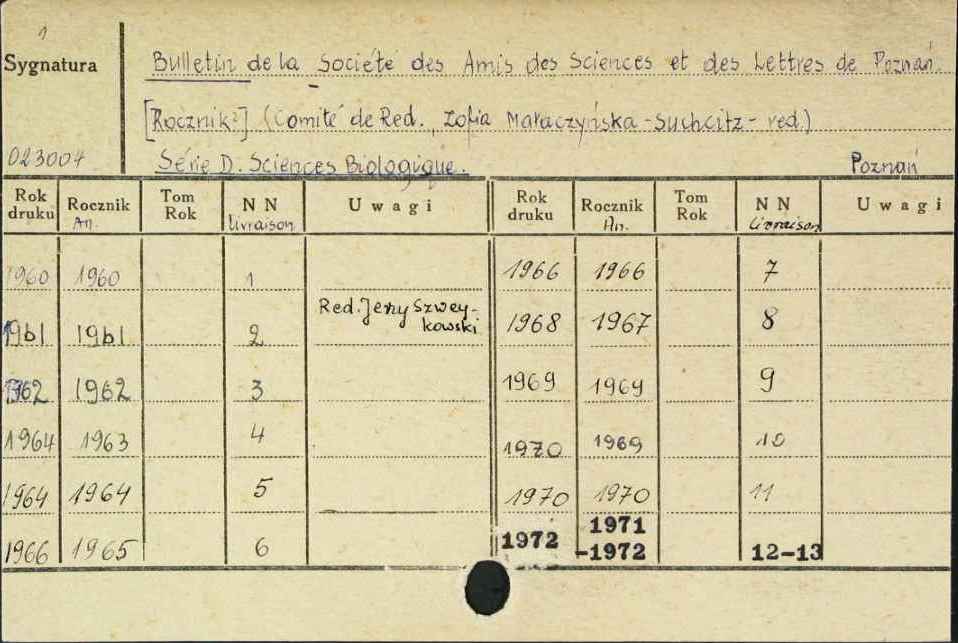 1
Sygnatura
Bulletin de la Société des Amis des Sciences et des Lettres de Poznań.
[Rocznik] (Comité de Red. Zofia Małaczyńska-Suchcitz - red.)
023004
Série D. Sciences Biologique.
Poznań
Rok druku | Rocznik An. | Tom Rok | NN Livraison | Uwagi | Rok druku | Rocznik An. | Tom Rok | NN Livraison | Uwagi
1960 | 1960 | | 1 | | 1966 | 1966 | | 7 |
1961 | 1961 | | 2 | Red. Jerzy Szweykowski | 1968 | 1967 | | 8 |
1962 | 1962 | | 3 | | 1969 | 1969 | | 9 |
1964 | 1963 | | 4 | | 1970 | 1969 | | 10 |
1964 | 1964 | | 5 | | 1970 | 1970 | | 11 |
1966 | 1965 | | 6 | | 1972 | 1971-1972 | | 12-13 |